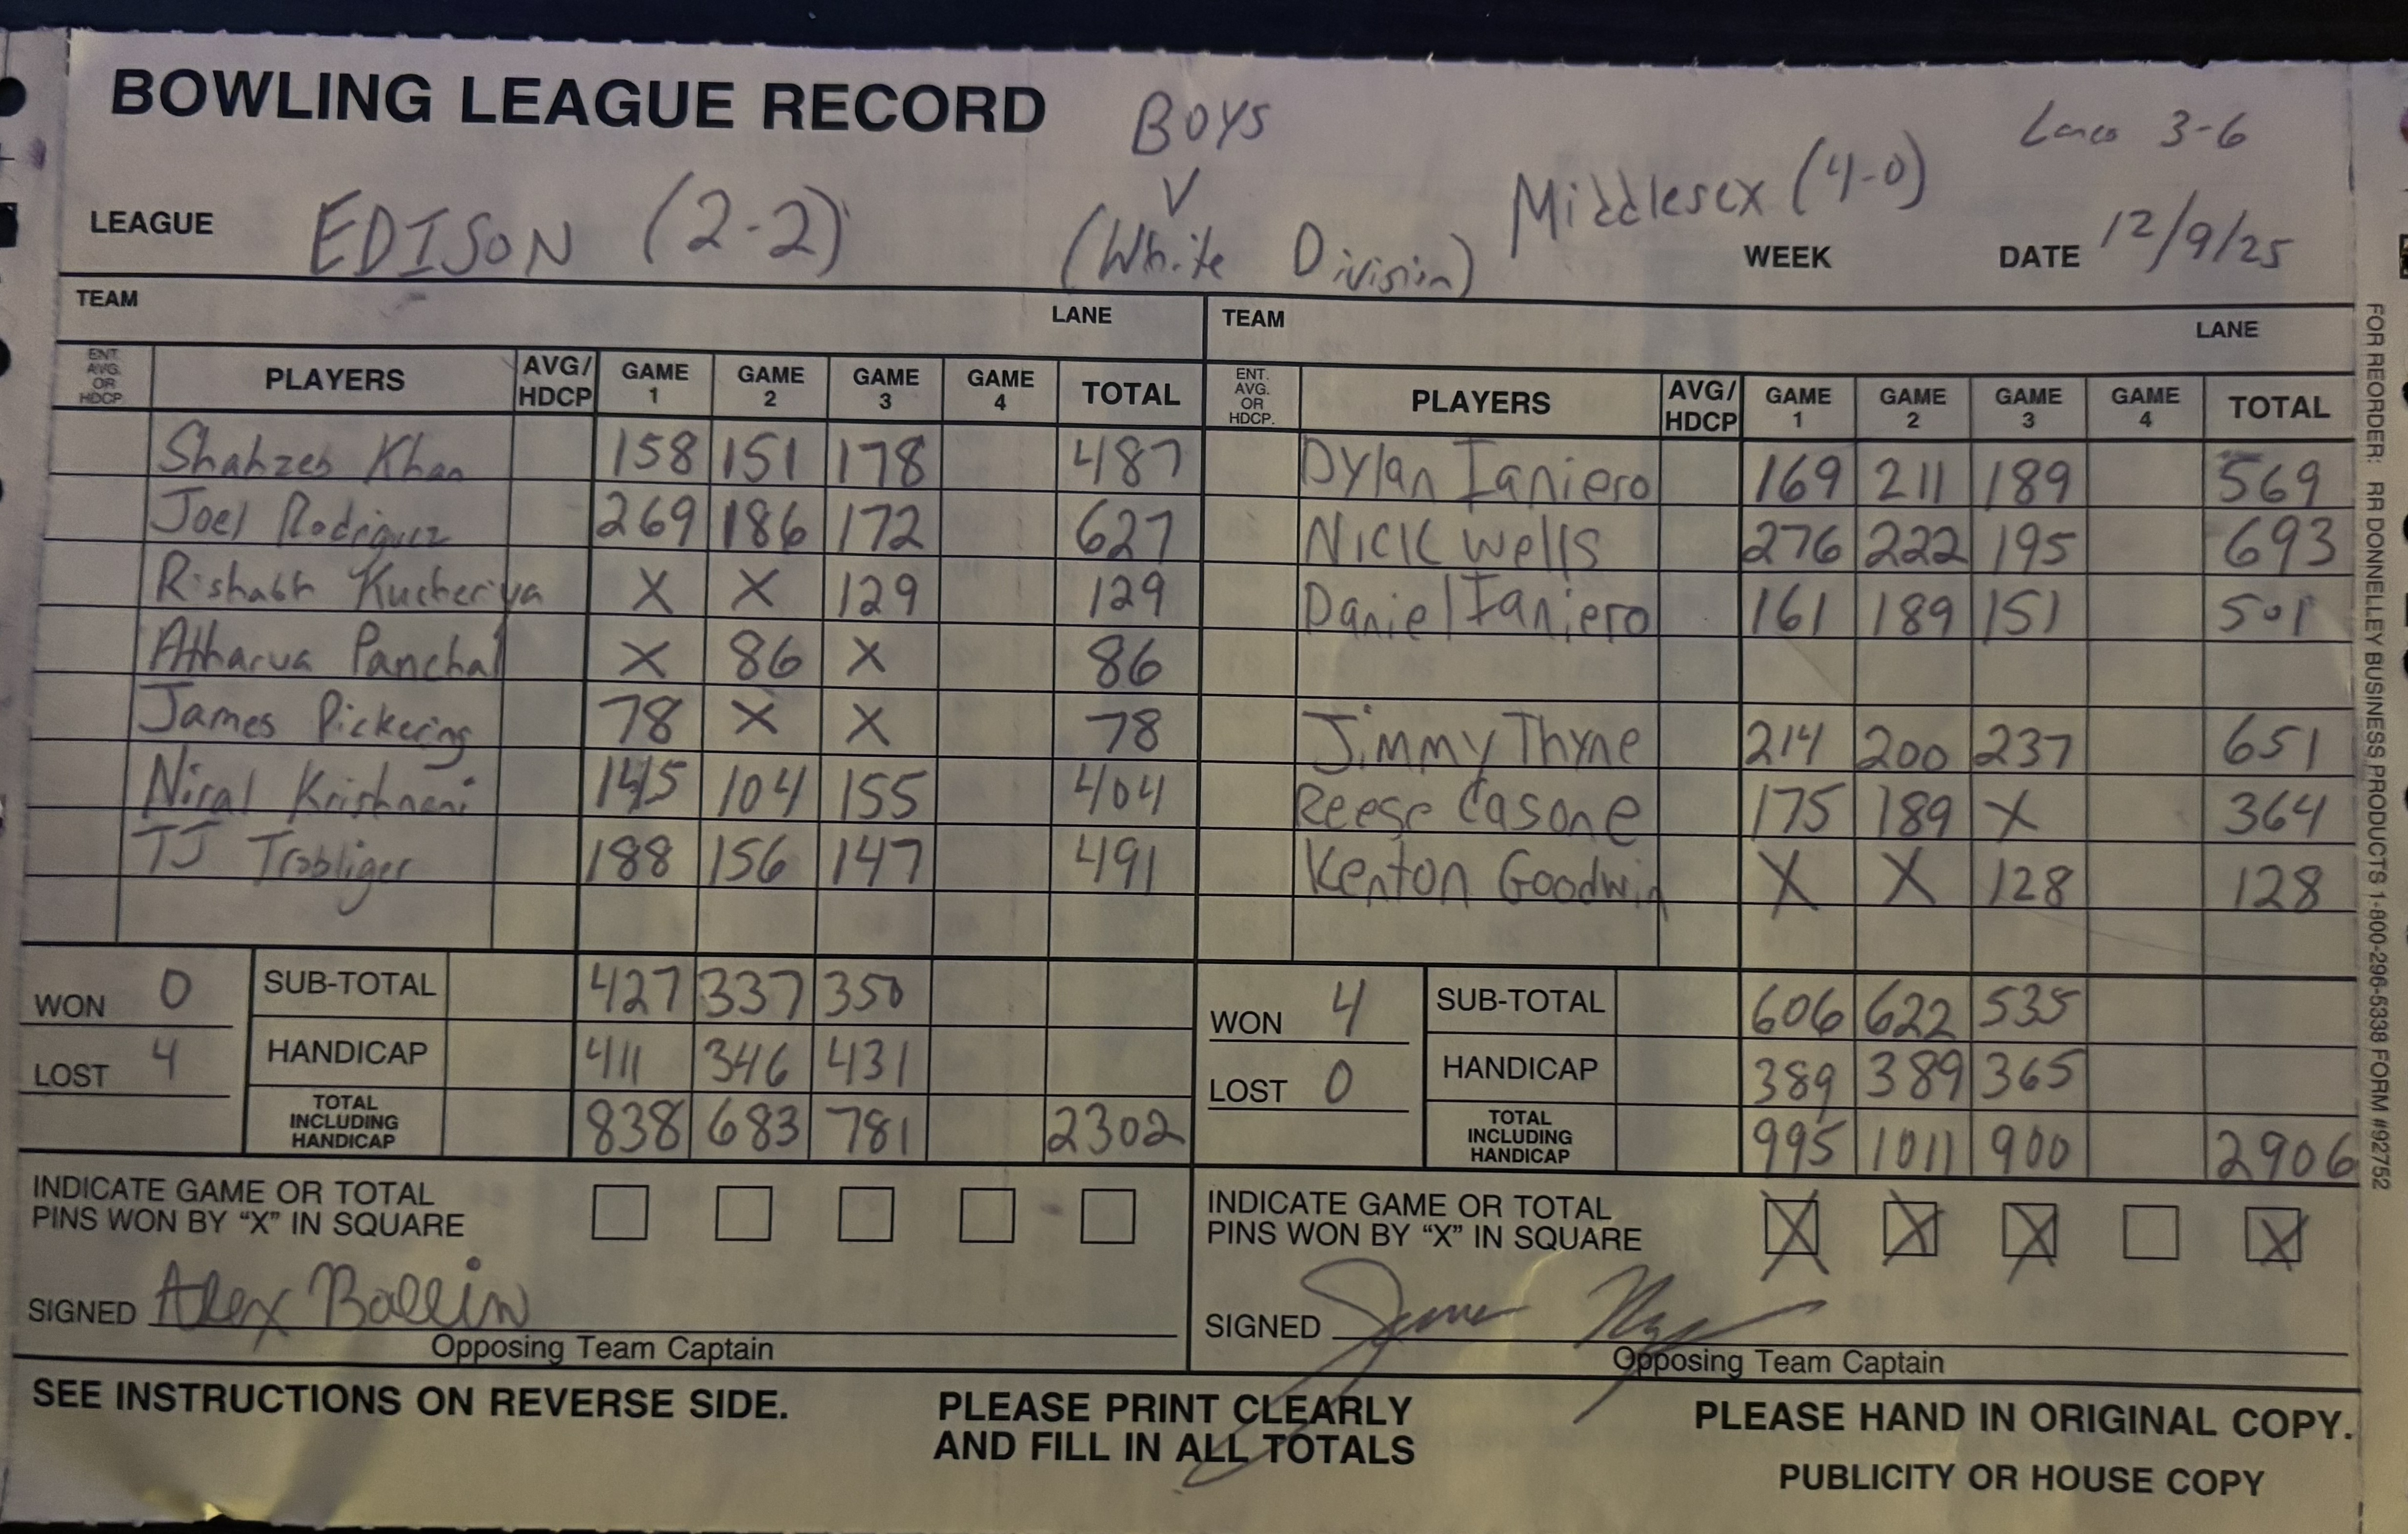 BOWLING LEAGUE RECORD
BOYS
Lanes 3-6
LEAGUE EDISON (2-2) V Middlesex (4-0)
(White Division) WEEK DATE 12/9/25
TEAM LANE TEAM LANE
ENT. AVG. OR HDCP. PLAYERS AVG/ HDCP GAME 1 GAME 2 GAME 3 GAME 4 TOTAL ENT. AVG. OR HDCP. PLAYERS AVG/ HDCP GAME 1 GAME 2 GAME 3 GAME 4 TOTAL
Shahzeb Khan 158 151 178 487 Dylan Ianiero 169 211 189 569
Joel Rodriguez 269 186 172 627 Nick Wells 276 222 195 693
Rishabh Kucheriya X X 129 129 Daniel Ianiero 161 189 151 501
Atharva Panchal X 86 X 86
James Pickering 78 X X 78 Jimmy Thyne 214 200 237 651
Niral Krishnani 145 104 155 404 Reese Casone 175 189 X 364
TJ 188 156 147 491 Kenton Goodwin X X 128 128
WON 0 SUB-TOTAL 427 337 350 WON 4 SUB-TOTAL 606 622 535
LOST 4 HANDICAP 411 346 431 LOST 0 HANDICAP 389 389 365
TOTAL INCLUDING HANDICAP 838 683 781 2302 TOTAL INCLUDING HANDICAP 995 1011 900 2906
INDICATE GAME OR TOTAL INDICATE GAME OR TOTAL
PINS WON BY "X" IN SQUARE PINS WON BY "X" IN SQUARE X X X X
SIGNED Alex Ballin SIGNED
Opposing Team Captain Opposing Team Captain
SEE INSTRUCTIONS ON REVERSE SIDE. PLEASE PRINT CLEARLY PLEASE HAND IN ORIGINAL COPY.
AND FILL IN ALL TOTALS
PUBLICITY OR HOUSE COPY
FOR REORDER: RR DONNELLEY BUSINESS PRODUCTS 1-800-296-5338 FORM #92752